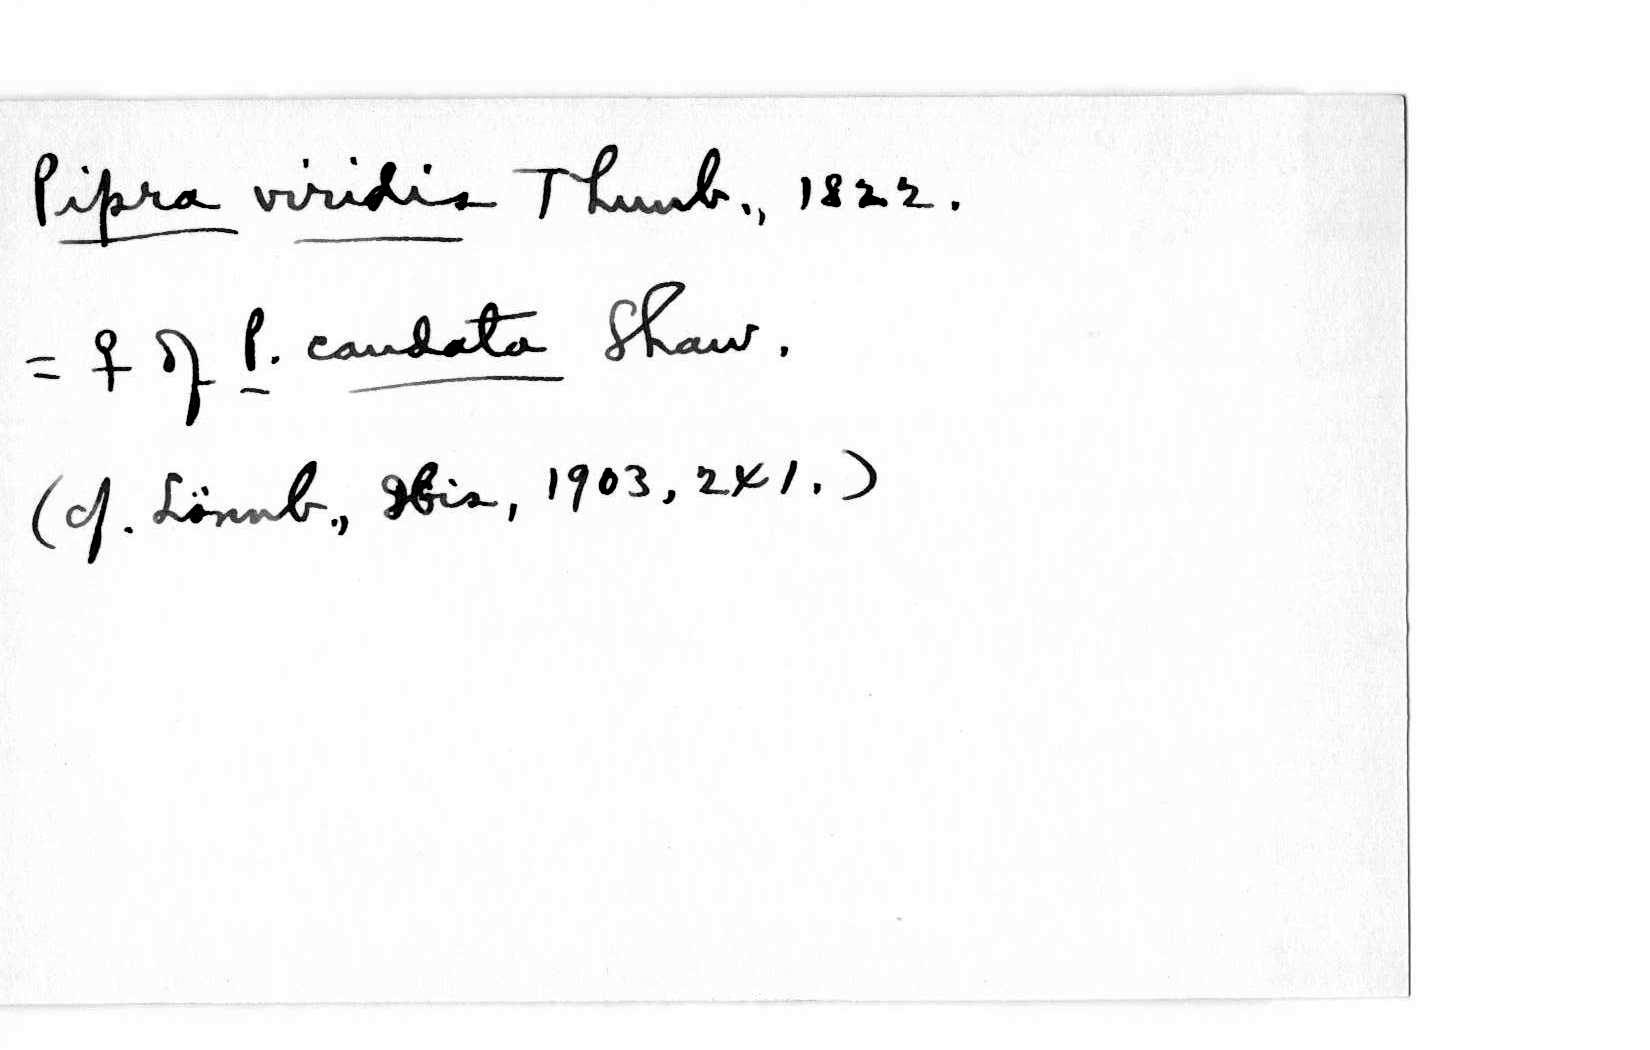 Pipra viridis Thunb., 1822.
= ♀ of P. caudata Shaw.
(cf. Lönnb., Ibis, 1903, 241.)